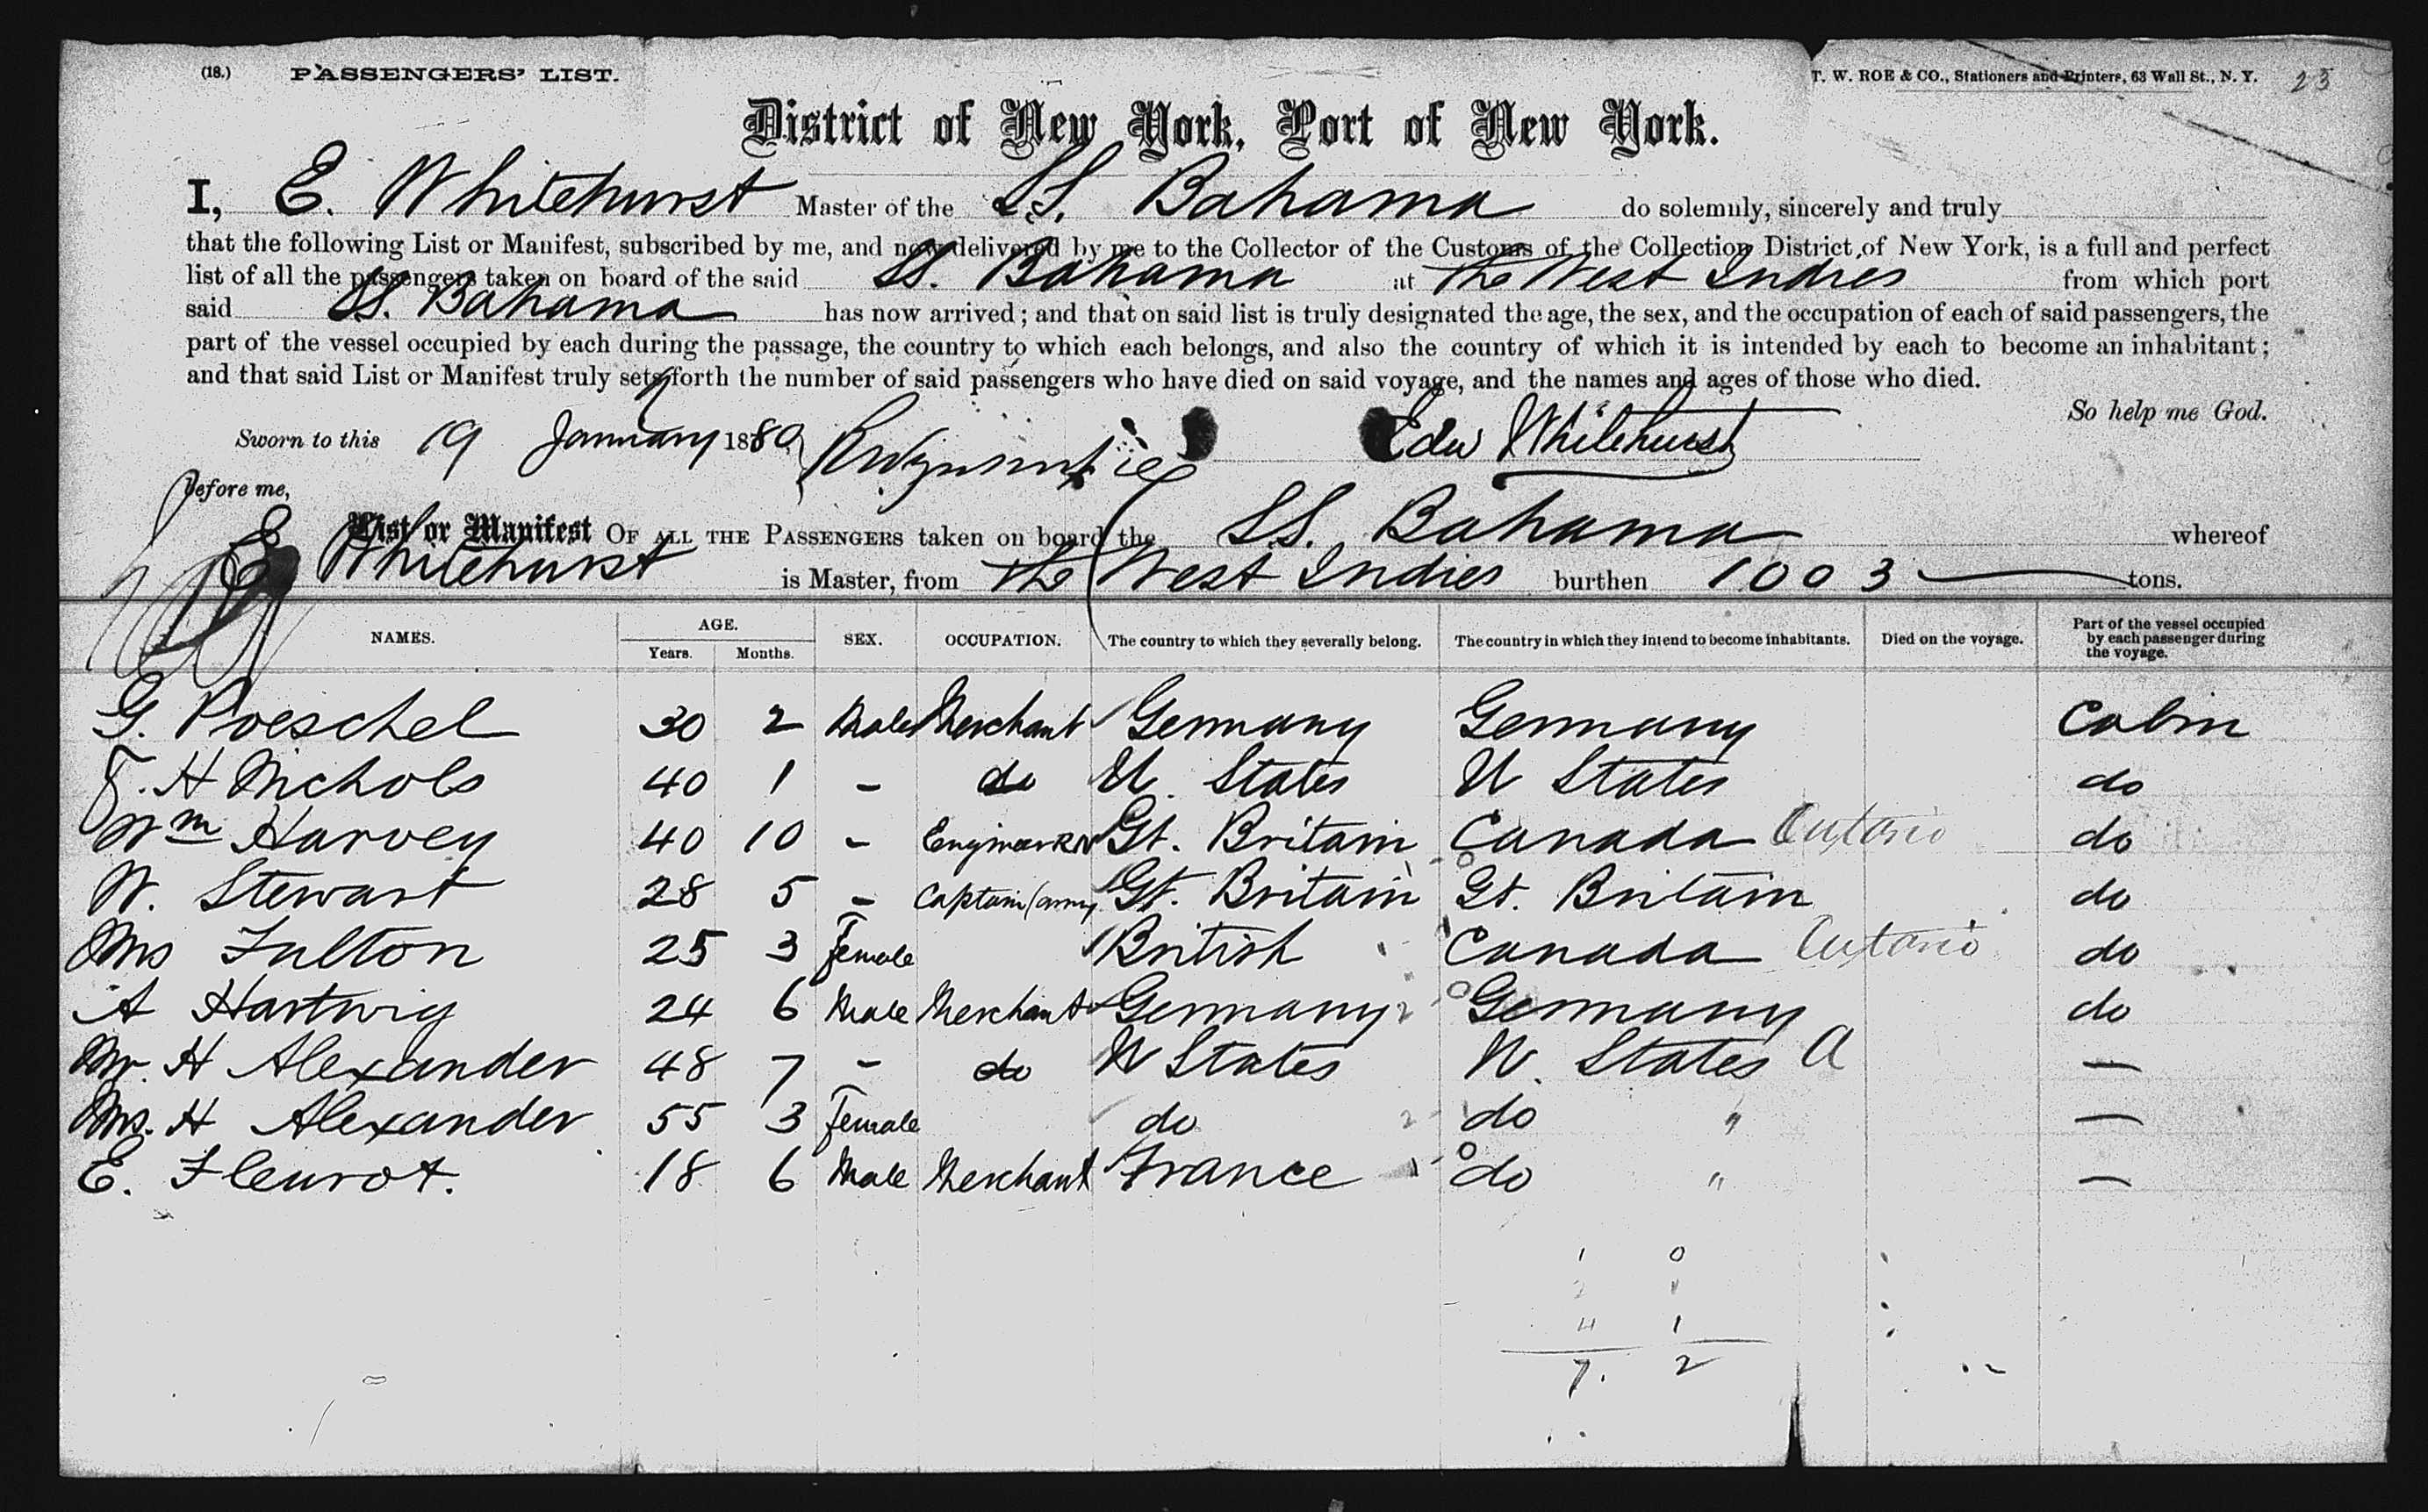 (18.) PASSENGERS' LIST. T. W. ROE & CO., Stationers and Printers, 63 Wall St., N. Y. 23
District of New York, Port of New York.
I, E. Whitehurst Master of the SS. Bahama do solemnly, sincerely and truly
that the following List or Manifest, subscribed by me, and now delivered by me to the Collector of the Customs of the Collection District of New York, is a full and perfect
list of all the passengers taken on board of the said SS. Bahama at the West Indies from which port
said SS. Bahama has now arrived; and that on said list is truly designated the age, the sex, and the occupation of each of said passengers, the
part of the vessel occupied by each during the passage, the country to which each belongs, and also the country of which it is intended by each to become an inhabitant;
and that said List or Manifest truly sets forth the number of said passengers who have died on said voyage, and the names and ages of those who died.
So help me God.
Sworn to this 19 January 1880 Edw Whitehurst
before me,
List or Manifest OF ALL THE PASSENGERS taken on board the SS. Bahama whereof
E Whitehurst is Master, from the West Indies burthen 1003 tons.
NAMES. AGE. Years. Months. SEX. OCCUPATION. The country to which they severally belong. The country in which they intend to become inhabitants. Died on the voyage. Part of the vessel occupied by each passenger during the voyage.
G. Poeschel 30 2 Male Merchant Germany Germany Cabin
F. H Nichols 40 1 - do U. States U States do
Wm Harvey 40 10 - Engineer RN Gt. Britain Canada Ontario do
W. Stewart 28 5 - Captain (army Gt. Britain Gt. Britain do
Mrs Fulton 25 3 Female British Canada Ontario do
A Hartwig 24 6 Male Merchant Germany Germany do
Mr. H Alexander 48 7 - do U States U. States A —
Mrs. H Alexander 55 3 Female do do " —
E. Fleurot. 18 6 Male Merchant France do " —
1 0
2 1
4 1
7. 2